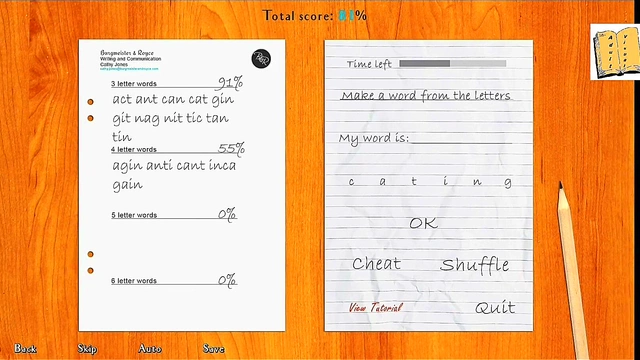 Total score: 81%
Borgmeister & Royce
Writing and Communication
Cathy Jones
3 letter words 91%
act ant can cat gin
git nag nit tic tan
tin
4 letter words 55%
agin anti cant inca
gain
5 letter words 0%
6 letter words 0%
Time left
Make a word from the letters
My word is:
c a t i n g
OK
Cheat Shuffle
View Tutorial Quit
Back Skip Auto Save